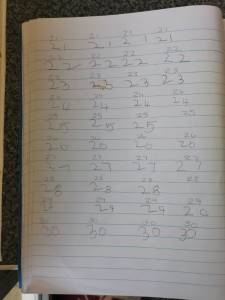 21 21 21 21
21 21 21 21
22 22 22 22
22 22 22 22
23 23 23 23
23 23 23 23
24 24 24 24
24 24 24 24
25 25 25 25
25 25 25
26 26 26 26
26 26 26 26
27 27 27 27
27 27 27 27
28 28 28 28
28 28 28 28
29 29 29 29
29 29 29
30 30 30 30
30 30 30 30